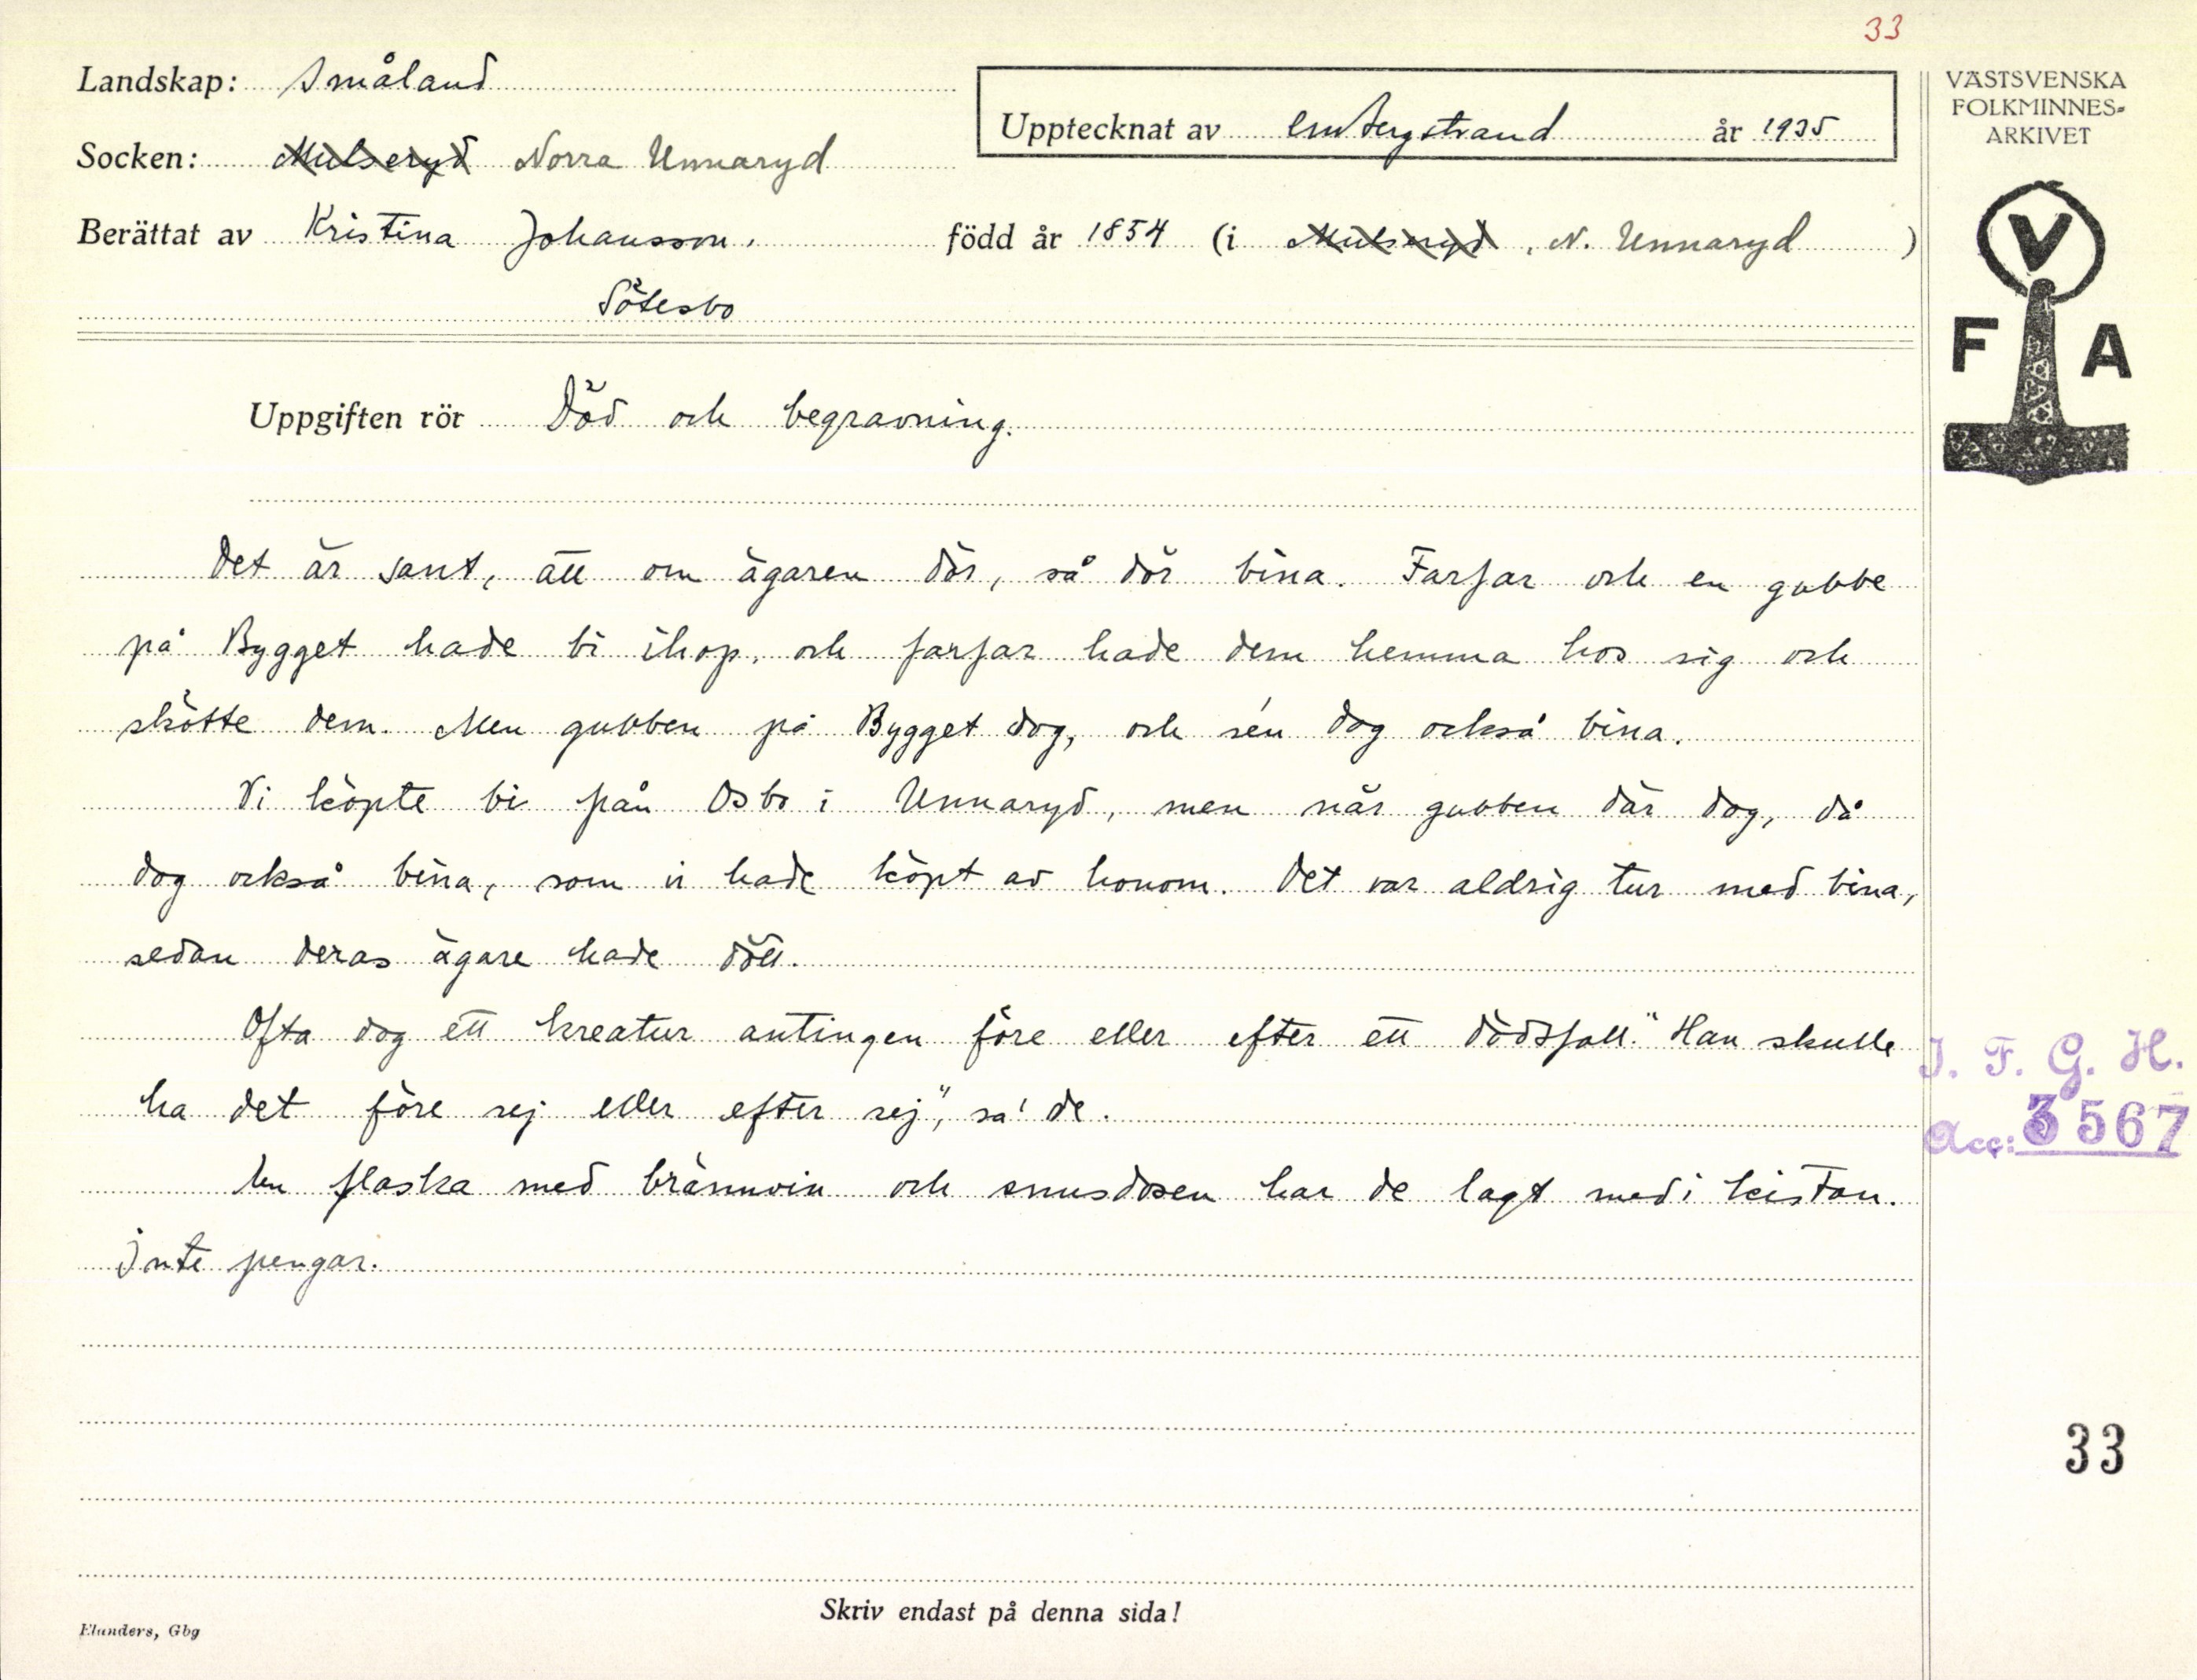 33
Landskap: Småland
VÄSTSVENSKA
FOLKMINNES-
ARKIVET
Upptecknat av C.M. Bergstrand år 1935
Socken: Mulseryd Norra Unnaryd
Berättat av Kristina Johansson, född år 1854 (i Mulseryd, N. Unnaryd)
Sötesbo
V
F A
Uppgiften rör Död och begravning.
Det är sant, att om ägaren dör, så dör bina. Farfar och en gubbe
på Bygget hade bi ihop, och farfar hade dem hemma hos sig och
skötte dem. Men gubben på Bygget dog, och sén dog också bina.
Vi köpte bi från Osbo i Unnaryd, men när gubben där dog, då
dog också bina, som vi hade köpt av honom. Det var aldrig tur med bina,
sedan deras ägare hade dött.
Ofta dog ett kreatur antingen före eller efter ett dödsfall. "Han skulle
ha det före sej eller efter sej", sa' de.
I. F. G. H.
Acc: 3567
En flaska med brännvin och snusdosen har de lagt med i kistan.
Inte pengar.
33
Skriv endast på denna sida!
Elanders, Gbg